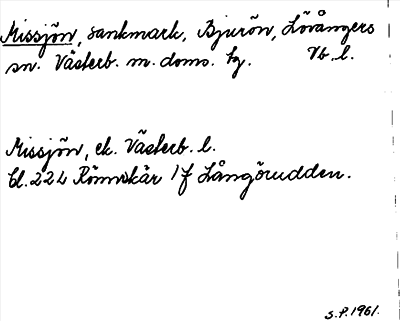 Missjön, sankmark, Bjurön, Lövångers
sn. Västerb. m. doms. hg. Vb. l.
Missjön, ek. Västerb. l.
bl. 22L Rönnskär 1f Långörudden.
S.P. 1961.